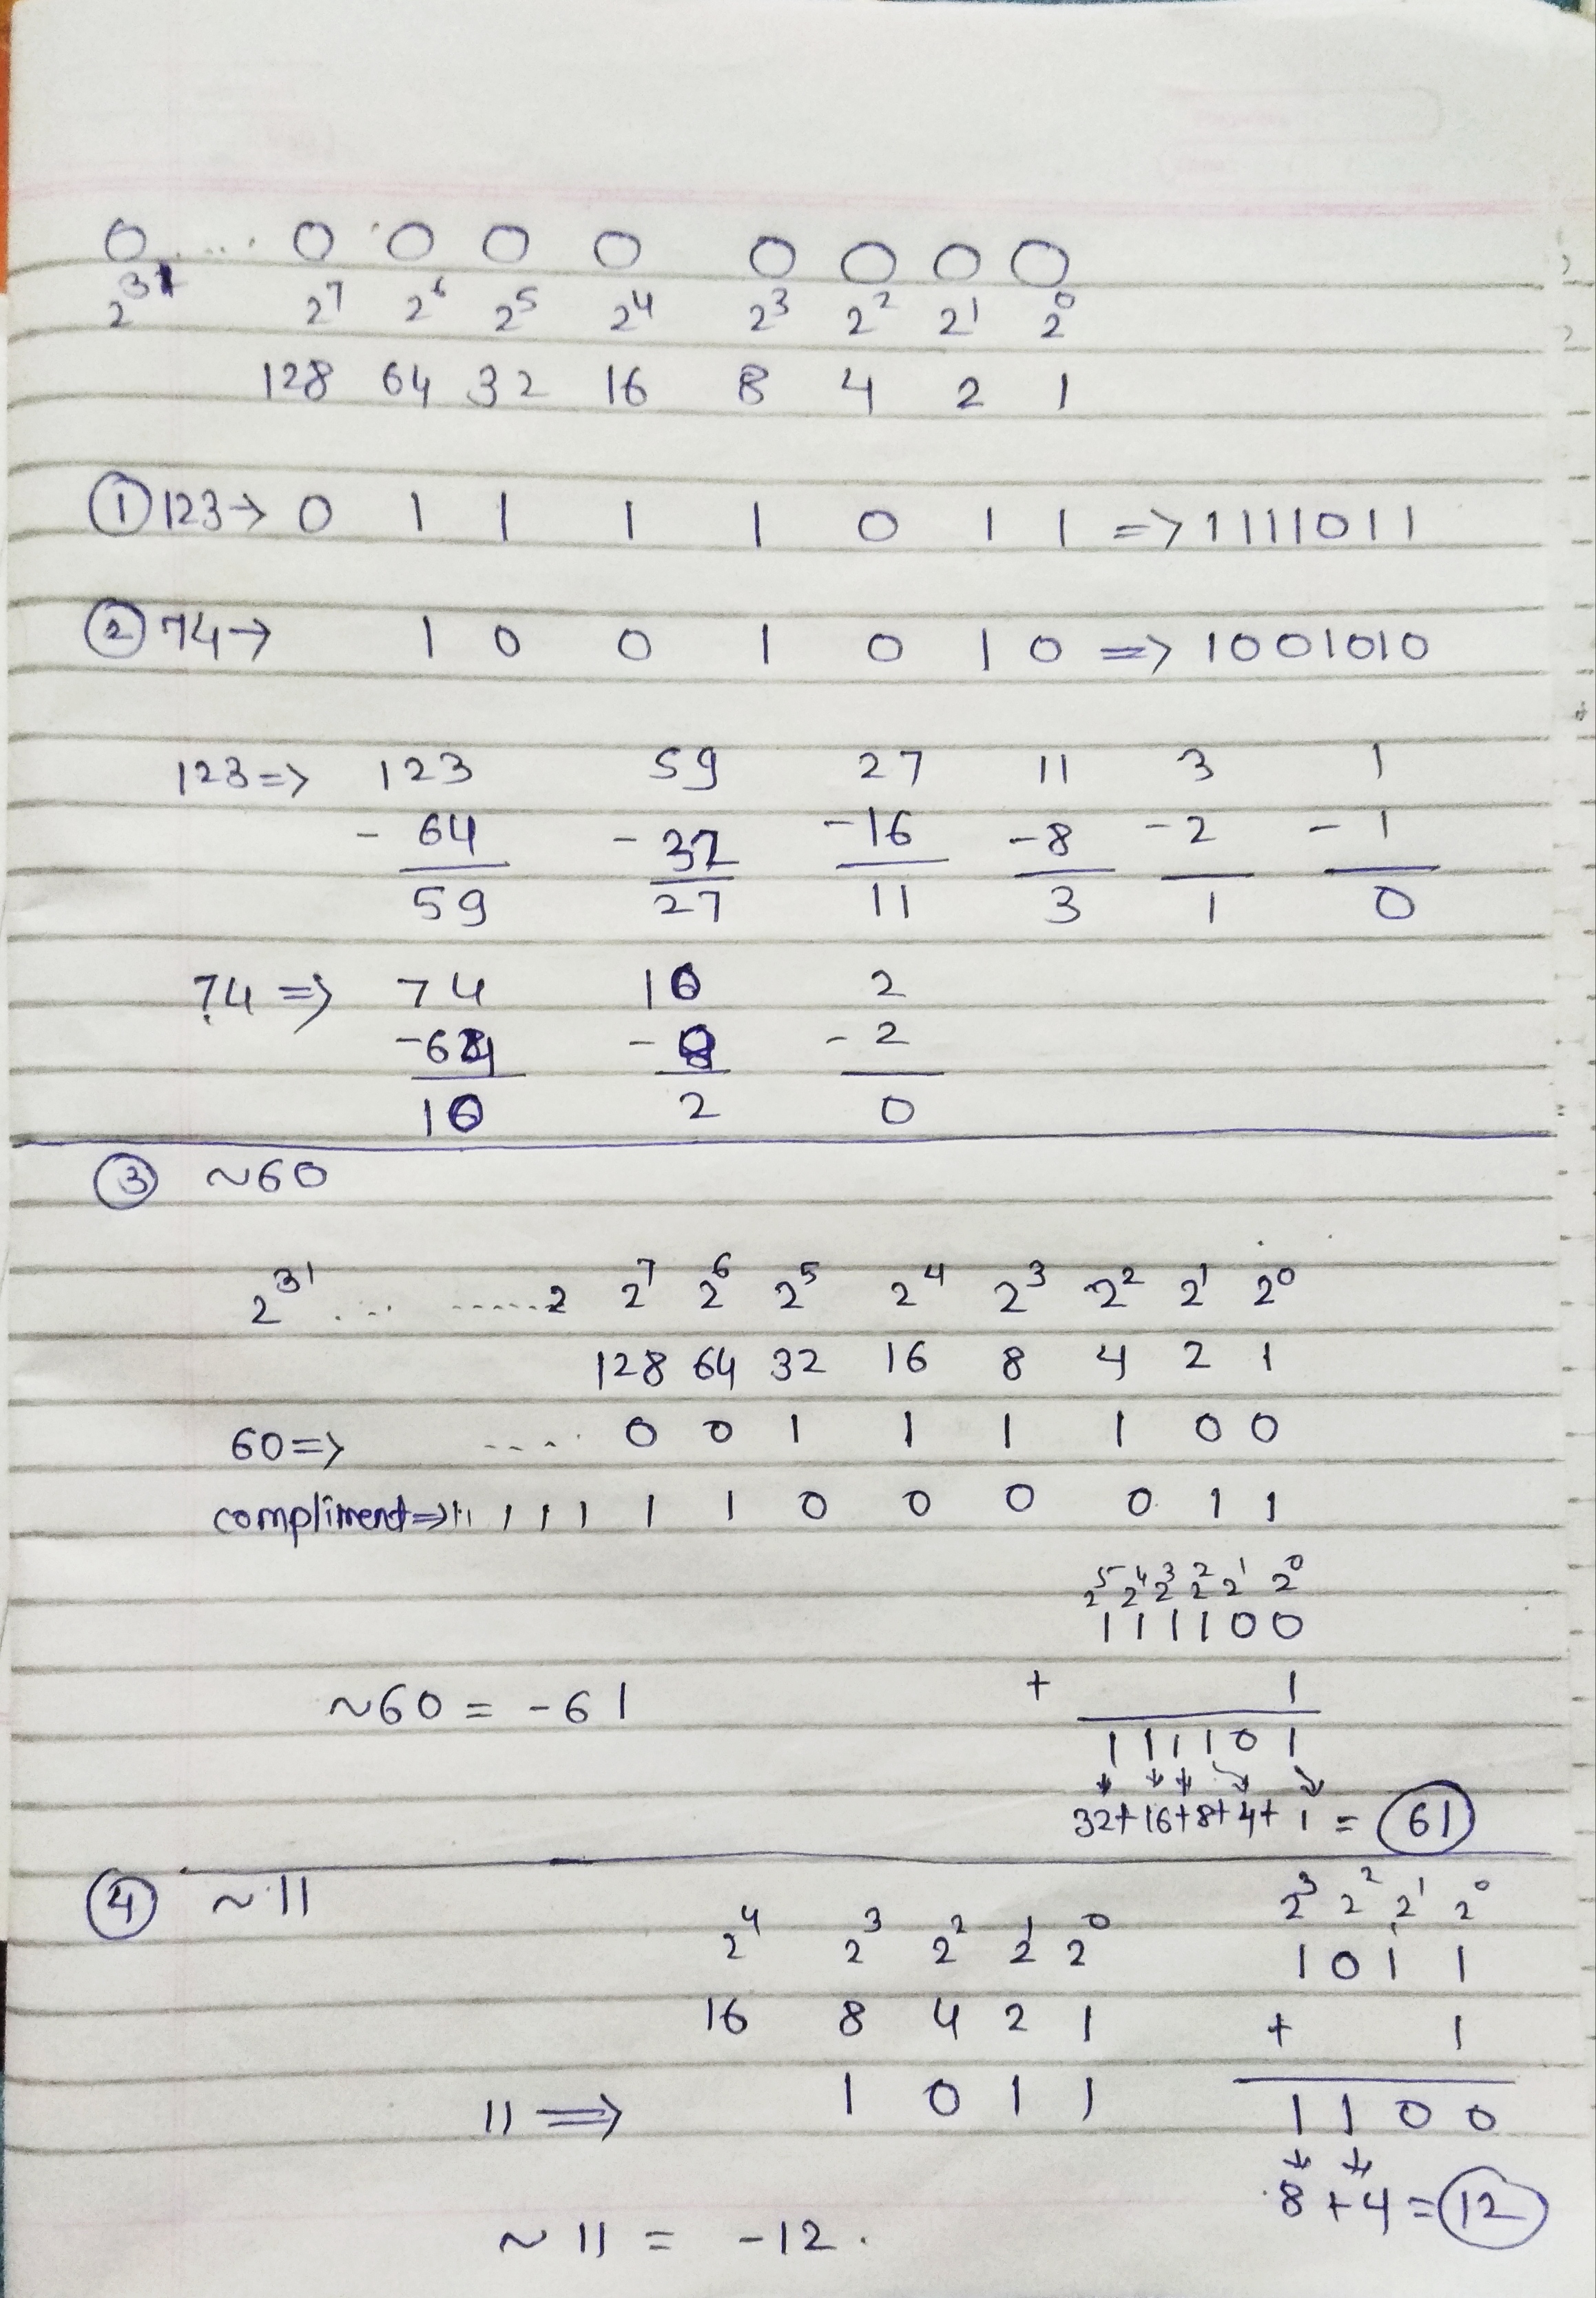 0 .... 0 0 0 0 0 0 0 0
2^31 2^7 2^6 2^5 2^4 2^3 2^2 2^1 2^0
128 64 32 16 8 4 2 1
① 123 → 0 1 1 1 1 0 1 1 => 1111011
② 74 → 1 0 0 1 0 1 0 => 1001010
123 => 123 59 27 11 3 1
- 64 - 32 - 16 - 8 - 2 - 1
59 27 11 3 1 0
74 => 74 10 2
- 64 - 8 - 2
10 2 0
③ ~60
2^31 ... ...... 2 2^7 2^6 2^5 2^4 2^3 2^2 2^1 2^0
128 64 32 16 8 4 2 1
60 => .... 0 0 1 1 1 1 0 0
compliment => 11 1 1 1 1 1 0 0 0 0 1 1
2^5 2^4 2^3 2^2 2^1 2^0
1 1 1 1 0 0
~60 = -61 + 1
1 1 1 1 0 1
32+16+8+4+ 1 = 61
④ ~11 2^3 2^2 2^1 2^0
2^4 2^3 2^2 2^1 2^0 1 0 1 1
16 8 4 2 1 + 1
11 => 1 0 1 1 1 1 0 0
8 + 4 = 12
~11 = -12.